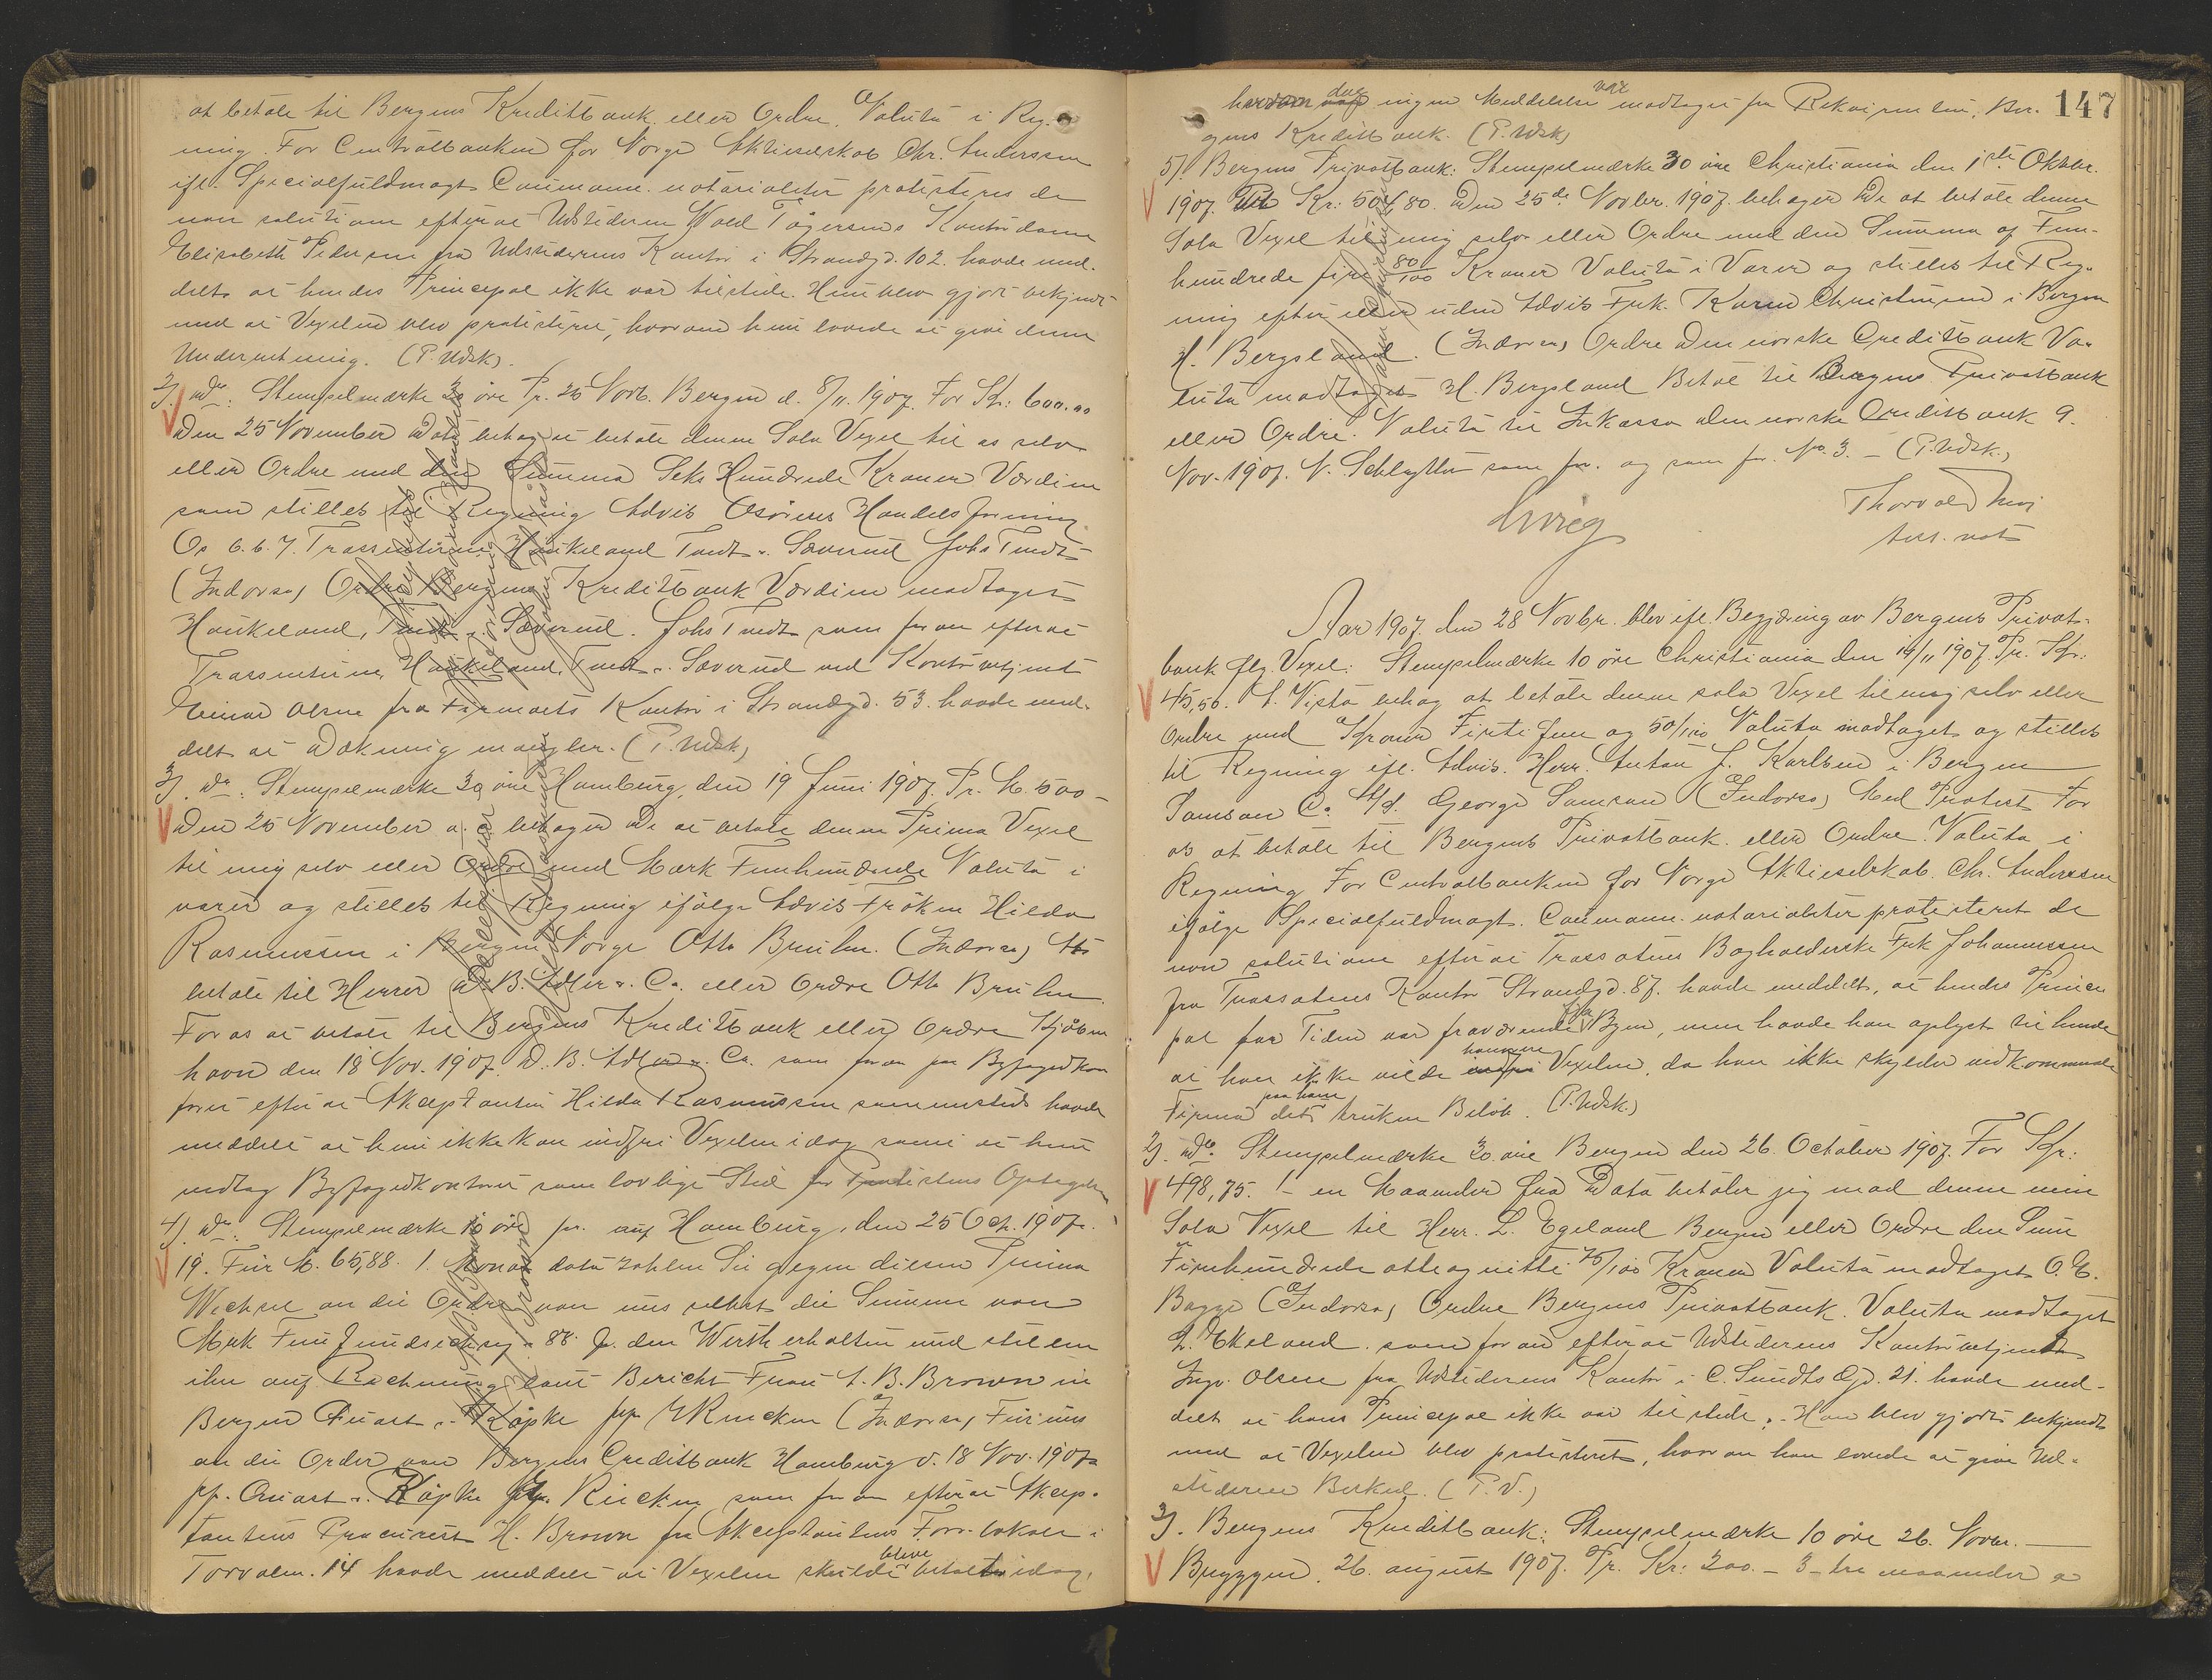 at betale til Bergens Kreditbank eller Ordre. Valuta i Reg-
ning. For Centralbanken for Norge Aktieselskab Chr. Anderssen
ifl. Specialfuldmagt Caumann. notarialiter protesteres de
non solutione efterat Udstederen Wald Tøgersens Kontordame
Elisabeth Pedersen fra Udstederens Kontor i Strandgd. 102. havde med-
delt at hendes Principal ikke var tilstede. Hun blev gjort bekjendt
med at Vexelen blev protesteret, hvorom hun lovede at give denne
Underretning. (P. Udsk).
2). do: Stempelmærke 30 øre Pr. 25 Novb. Bergen d. 8/11. 1907. For Kr: 600.00
Den 25 November Dato behag at betale denne Sola Vexel til os selv
eller Ordre med den Summa Seks Hundrede Kroner Værdien
som stilles til Regning Advis Osørens Handelsforening
Os 6.6.7. Trassenterne Haukeland Tvedt & Sæverud Johs Tvedt
(Indorso) Ordre Bergens Kreditbank Værdien modtaget
Haukeland, Tvedt & Sæverud. Johs Tvedt som foran efterat
Trassenterne, Haukeland, Tvedt & Sæverud ved Kontorbetjent
Einar Olsen fra Firmaets Kontor i Strandgd. 53. havde med-
delt at Dækning mangler. (P. Udsk)
3). do: Stempelmærke 30 øre Hamburg, den 19 Juni 1907. Pr. M. 500-
Den 25 November a. c. behager De at betale denne Prima Vexel
til mig selv eller Ordre med Mark Femhundrede Valuta i
varer og stilles til Regning ifølge Advis Frøken Hilda
Rasmussen i Bergen Norge Otto Bruhn. (Indorso) At
betale til Herrer D. B. Adler & Co. eller Ordre Otto Bruhn
For os at betale til Bergens Kreditbank eller Ordre Kjøben
havn den 18 Nov. 1907. D. B. Adler & Co. som foran paa Byfogedkon
toret efterat Akceptanten Hilda Rasmussen sammesteds havde
meddelt at hun ikke kan indfri Vexelen idag samt at hun
vedtog Byfogedkontoret som lovlige Sted for Protestens Optagelse
4). do: Stempelmærke 10 øre pr. auf Hamburg, den 25 Oct. 1907.
19. Für M. 65,88. 1. Monat dato zahlen Sie gegen diesen Prima
Wechsel an die Ordre von uns selbst die Summe von
Mark Fünfundsechzig & 88 Pf. den Werth erhalten und stellen
ihn auf Rechnung laut Bericht Frau A. B. Brown in
Bergen Quast & Köpke pp Rucken (Indorso) Für uns
an die Order von Bergens Creditbank Hamburg d. 18 Nov. 1907
pp. Quast & Köpke Rucken som foran efterat Akcep-
tantens Procurist H. Brown fra Akceptantens Forr. lokale i
Torvalm. 14 havde meddelt at Vexelen skulde blive betalt idag,
147
hvorom dog ingen Meddelelse var modtaget fra Rekvirenten, Ber-
gens Kreditbank. (P. Udsk)
5) Bergens Privatbank: Stempelmærke 30 øre Christiania den 1ste Oktbr.
1907. Kr: 504,80. Den 25de Novbr. 1907. behager De at betale denne
Sola Vexel til mig selv eller Ordre med den Summa af Fem-
hundrede fire 80/100 Kroner Valuta i Varer og stilles til Reg-
ning efter eller uden Advis Frk. Karen Christensen i Bergen
H. Bergsland. (Indorso) Ordre Den norske Creditbank Va-
luta modtaget H. Bergsland Betal til Bergens Privatbank
eller Ordre. Valuta til Inkasso den norske Creditbank 9.
Nov. 1907. N. Schlytter som for. og som for. No 3. - (P. Udsk.)
Thorvald
ass. not
Aar 1907. den 28 Novbr. blev ifl. Begjæring av Bergens Privat-
bank flg. Vexel: Stempelmærke 10 øre Christiania den 14/11 1907. Pr. Kr:
45,50. A Vista behag at betale denne sola Vexel til mig selv eller
Ordre med Kroner Firti fem og 50/100 Valuta modtaget og stilles
til Regning ifl. Advis. Herr. Anton J. Karlsen i Bergen
Samson Co. A/S. George Samson (Indorso) Med Protest For
os at betale til Bergens Privatbank eller Ordre. Valuta i
Regning For Centralbanken for Norge Aktieselskab. Chr. Anderssen
ifølge Specialfuldmagt. Caumann. notarialiter protesteret de
non solutione efterat Trassatens Bogholderske Frk Johannessen
fra Trassatens Kontor Strandgd. 87. havde meddelt, at hendes Princi
pal for Tiden var fraværende fra Byen, men havde han oplyst til hende
at han ikke vilde honorere Vexelen, da han ikke skylder vedkommende
Firma det paa ham trukne Beløb. (P. Udsk.)
2). do. Stempelmærke 30 øre Bergen den 26. October 1907. For Kr:
498,75. 1- en Maaneder fra Dato betaler jeg mod denne min
Sola Vexel til Herr. L. Egeland Bergen eller Ordre den Sum
Firehundrede otteognitti 75/100 Kroner Valuta modtaget O. E.
Bagge (Indorso) Ordre Bergens Privatbank. Valuta modtaget
L. Ekeland. som foran efterat Udstederens Kontorbetjent
Ingv. Olsen fra Udstederens Kontor i C. Sundts Gd. 21. havde med-
delt at hans Principal ikke var tilstede. - Han blev gjort bekjendt
med at Vexelen blev protesteret, hvorom han lovede at give Ud-
stederen Beskæd. (P. U.)
3). Bergens Kreditbank: Stempelmærke 10 øre 26. Novbr. -
Bryggen. 26. august 1907. Pr. Kr: 200. - 3 - tre maaneder a